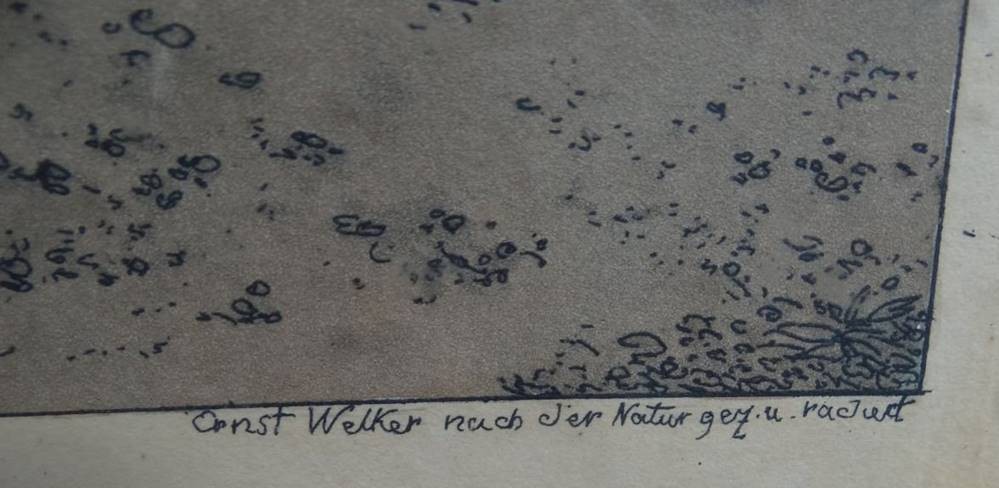 Ernst Welker nach der Natur gez. u. radiert